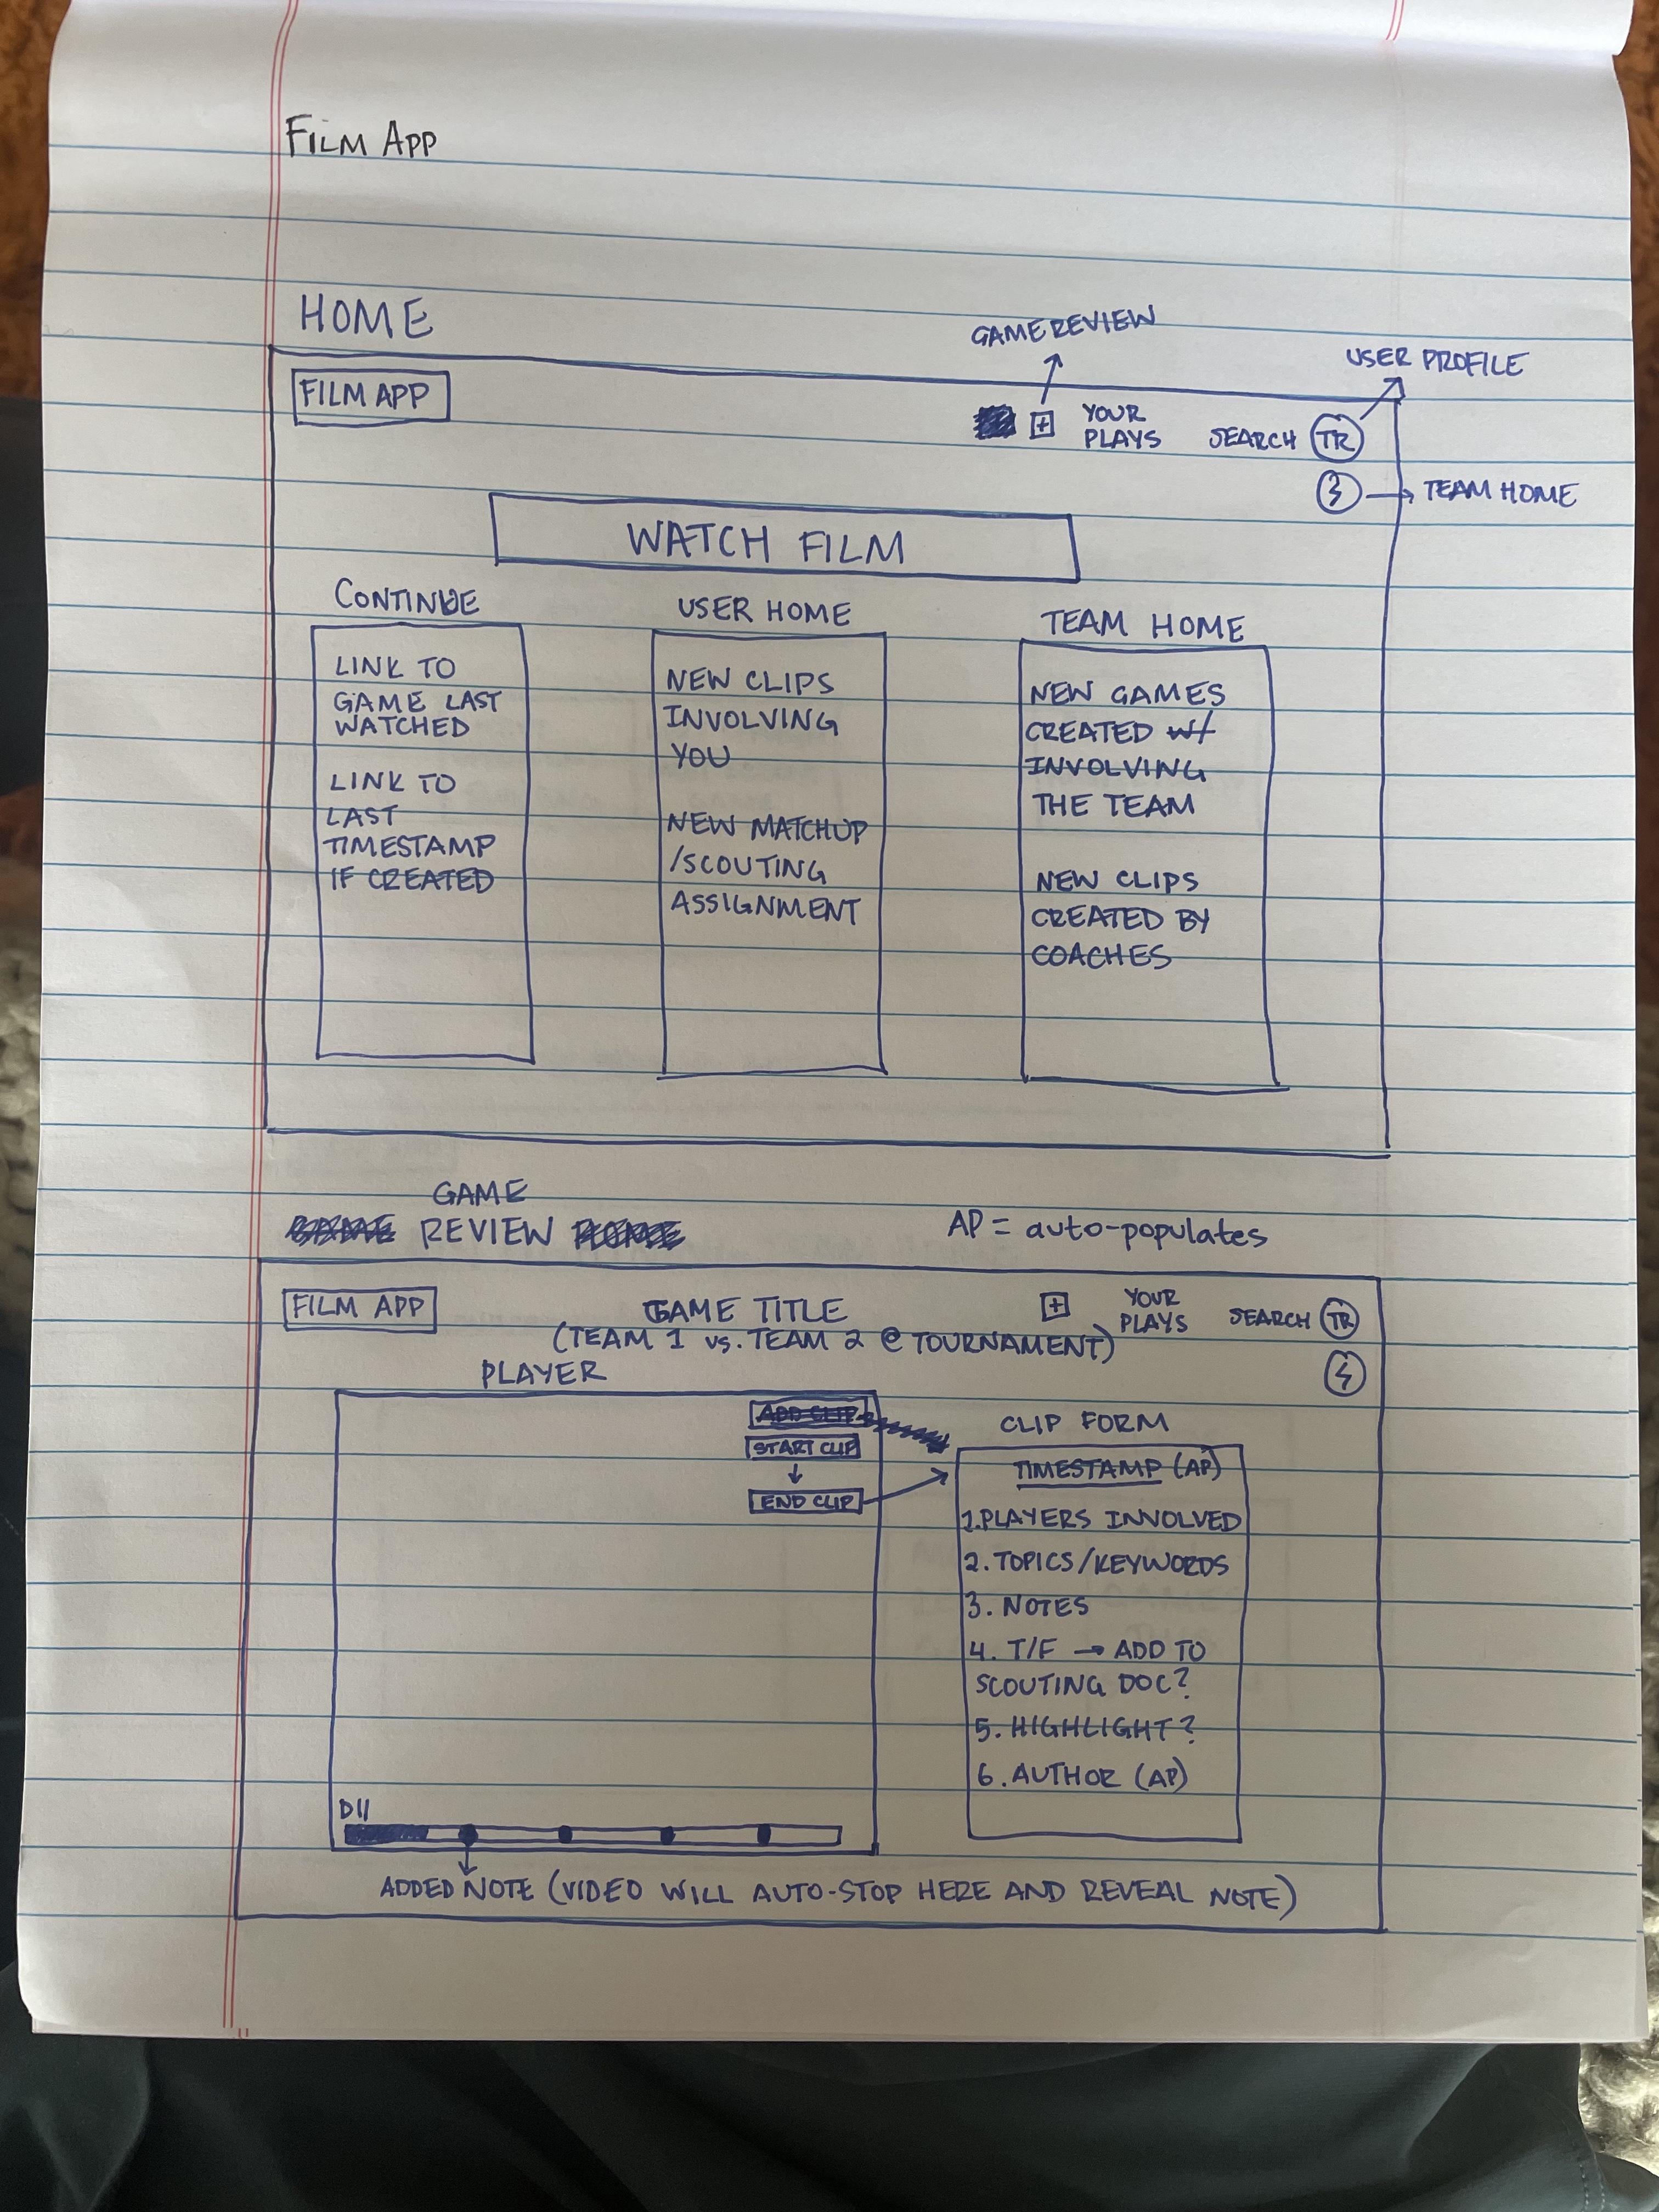 FILM APP
HOME
GAME REVIEW
USER PROFILE
FILM APP
+
YOUR
PLAYS
SEARCH
TR
TEAM HOME
WATCH FILM
CONTINUE
LINK TO
GAME LAST
WATCHED
LINK TO
LAST
TIMESTAMP
IF CREATED
USER HOME
NEW CLIPS
INVOLVING
YOU
NEW MATCHUP
/SCOUTING
ASSIGNMENT
TEAM HOME
NEW GAMES
CREATED w/
INVOLVING
THE TEAM
NEW CLIPS
CREATED BY
COACHES
GAME
GAME REVIEW HOME
AP = auto-populates
FILM APP
GAME TITLE
(TEAM 1 vs. TEAM 2 @ TOURNAMENT)
+
YOUR
PLAYS
SEARCH
TR
PLAYER
ADD CLIP
START CLIP
END CLIP
CLIP FORM
TIMESTAMP (AP)
1. PLAYERS INVOLVED
2. TOPICS/KEYWORDS
3. NOTES
4. T/F → ADD TO
SCOUTING DOC?
5. HIGHLIGHT?
6. AUTHOR (AP)
ADDED NOTE (VIDEO WILL AUTO-STOP HERE AND REVEAL NOTE)